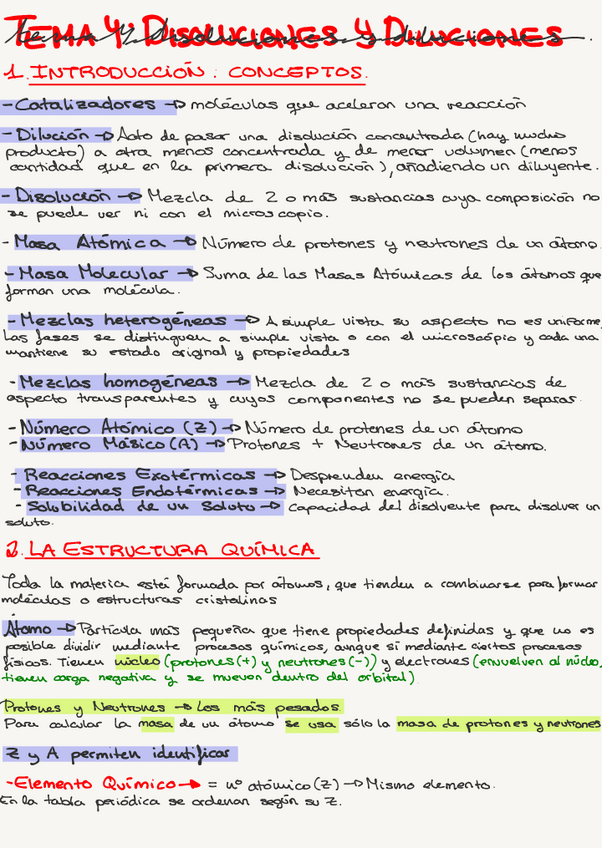 TEMA 4: DISOLUCIONES Y DILUCIONES
1. INTRODUCCIÓN: CONCEPTOS.
- Catalizadores → moléculas que aceleran una reacción
- Dilución → Acto de pasar una disolución concentrada (hay mucho
producto) a otra menos concentrada y de menor volumen (menos
cantidad que en la primera disolución), añadiendo un diluyente.
- Disolución → Mezcla de 2 o más sustancias cuya composición no
se puede ver ni con el microscopio.
- Masa Atómica → Número de protones y neutrones de un átomo.
- Masa Molecular → Suma de las Masas Atómicas de los átomos que
forman una molécula.
- Mezclas heterogéneas → A simple vista su aspecto no es uniforme,
las fases se distinguen a simple vista o con el microscópio y cada una
mantiene su estado original y propiedades
- Mezclas homogéneas → Mezcla de 2 o más sustancias de
aspecto transparentes y cuyos componentes no se pueden separar.
- Número Atómico (Z) → Número de protenes de un átomo
- Número Másico (A) → Protones + Neutrones de un átomo.
- Reacciones Exotérmicas → Desprenden energía
- Reacciones Endotérmicas → Necesitan energía.
- Solubilidad de un Soluto → Capacidad del disolvente para disolver un
soluto.
2. LA ESTRUCTURA QUÍMICA
Toda la materia está formada por átomos, que tienden a combinarse para formar
moléculas o estructuras cristalinas
Átomo → Partícula más pequeña que tiene propiedades definidas y que no es
posible dividir mediante procesos químicos, aunque sí mediante ciertos procesos
físicos. Tienen núcleo (protones (+) y neutrones (-)) y electrones (envuelven al núcleo,
tienen carga negativa y se mueven dentro del orbital)
Protones y Neutrones → Los más pesados
Para calcular la masa de un átomo se usa sólo la masa de protones y neutrones
Z y A permiten identificar
- Elemento Químico → = nº atómico (Z) → Mismo elemento.
En la tabla periódica se ordenan según su Z.